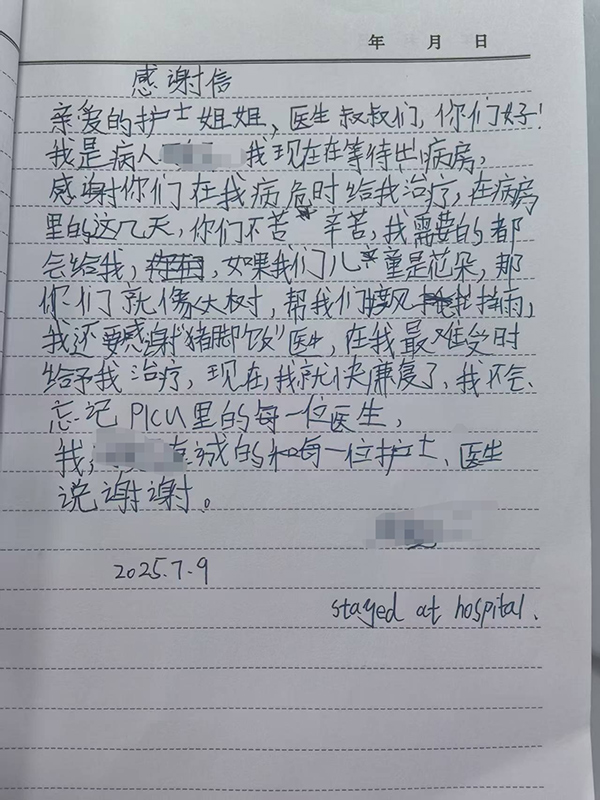 年 月 日
感谢信
亲爱的护士姐姐、医生叔叔们,你们好!
我是病人 我现在在等待出病房,
感谢你们在我病危时给我治疗,在病房
里的这几天,你们不苦 辛苦,我需要的都
会给我, 如果我们儿童是花朵,那
你们就像大树,帮我们挡风 挡雨,
我还要感谢“猪脚饭”医生,在我最难受时
给予我治疗,现在,我就快康复了,我不会
忘记PICU里的每一位医生,
我, 诚的和每一位护士、医生
说谢谢。
2025.7.9
stayed at hospital.